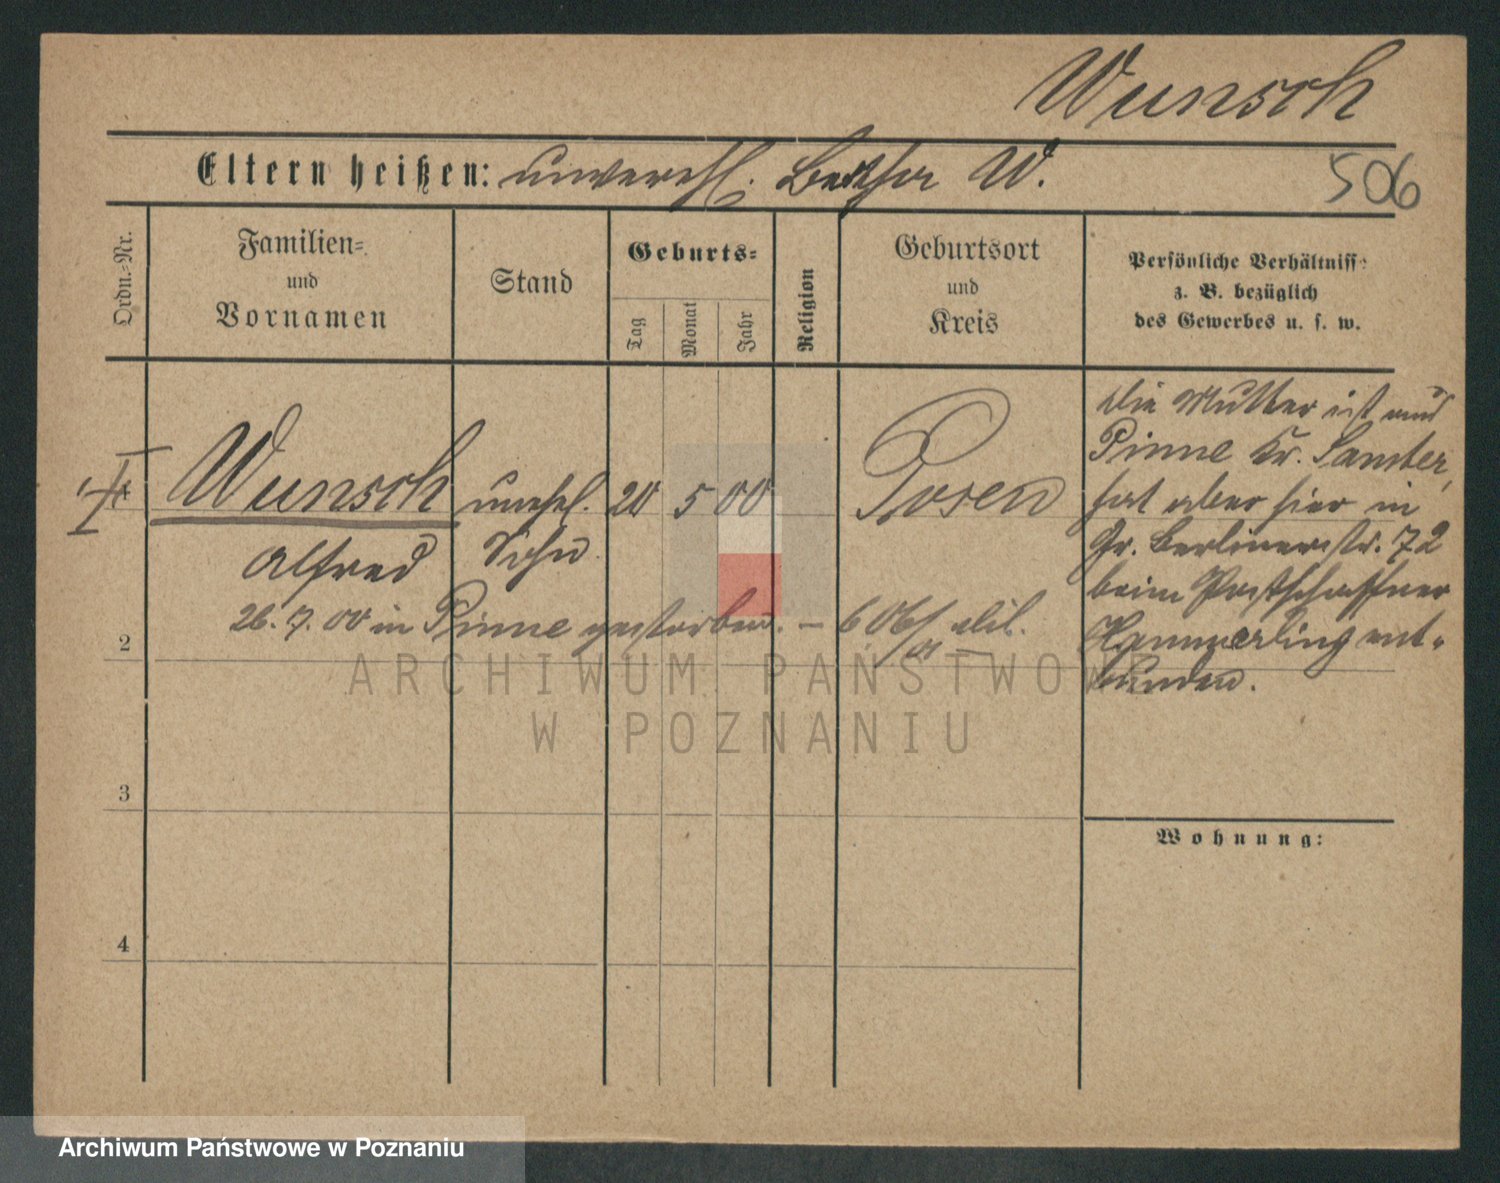 Wunsch
Eltern heißen: unverehl. Bertha W.
506
Ordn.-Nr.
Familien-
und
Vornamen
Stand
Geburts-
Tag
Monat
Jahr
Religion
Geburtsort
und
Kreis
Persönliche Verhältnisse
z. B. bezüglich
des Gewerbes u. s. w.
Wunsch
Alfred
unehel.
Sohn
20 5 00
Posen
Die Mutter ist aus
Pinne Kr. Samter,
hat aber hier in
Gr. Berlinerstr. 72
beim Postschaffner
Hammerling ent-
bunden.
26. 7. 00 in Pinne gestorben. —
2
3
4
Wohnung:
ARCHIWUM PAŃSTWOWE
W POZNANIU
Archiwum Państwowe w Poznaniu